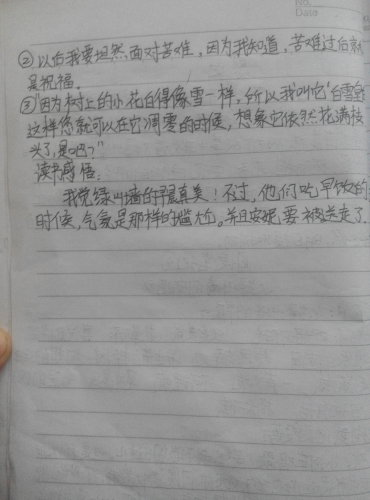 No.
Date
②以后我要坦然面对苦难，因为我知道，苦难过后就
是祝福。
③"因为树上的小花白得像雪一样，所以我叫它'白雪皇
这样您就可以在它凋零的时候，想象它依然花满枝
头了，是吧？"
读书感悟：
我觉绿叫墙的早晨真美！不过，他们吃早饭的
时候，气氛是那样的尴尬。并且安妮要被送走了．